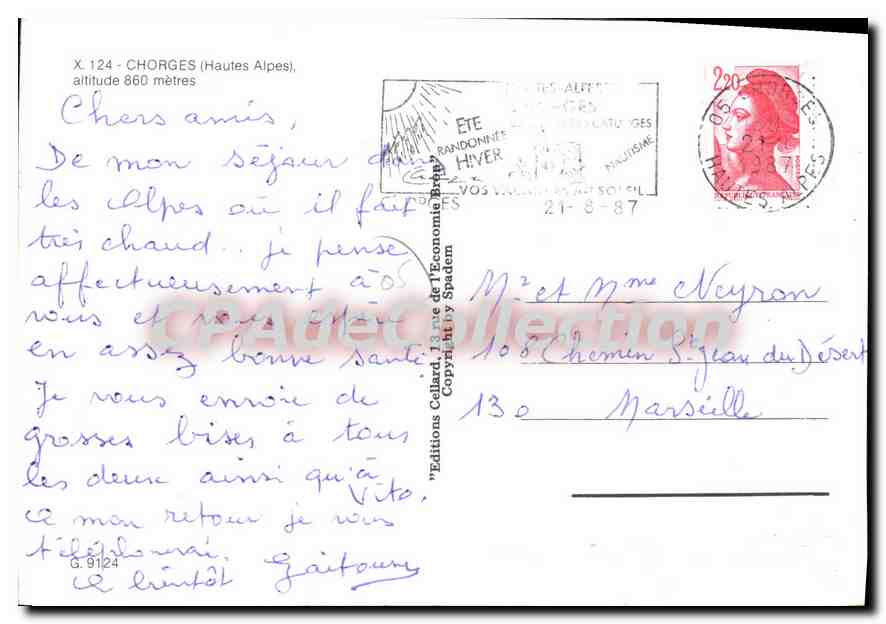 X. 124 - CHORGES (Hautes Alpes),
altitude 860 mètres
Chers amis,
De mon séjour dans
les Alpes où il fait
très chaud.. je pense
affectueusement à
vous et vous espère
en assez bonne santé
Je vous envoie de
grosses bises à tous
les deux ainsi qu'à
Vito.
A mon retour je vous
téléphonerai.
G. 9124
A bientôt
"Editions Cellard, 13 rue de l'Economie Bron"
Copyright by Spadem
ETE
RANDONNEE
HIVER
NAUTISME
VOS VACANCES AU SOLEIL
21-8-87
2,20
05
HAUTES ALPES
Mr et Mme Neyron
108 Chemin St Jean du Désert
130 Marseille
CPAdeCollection